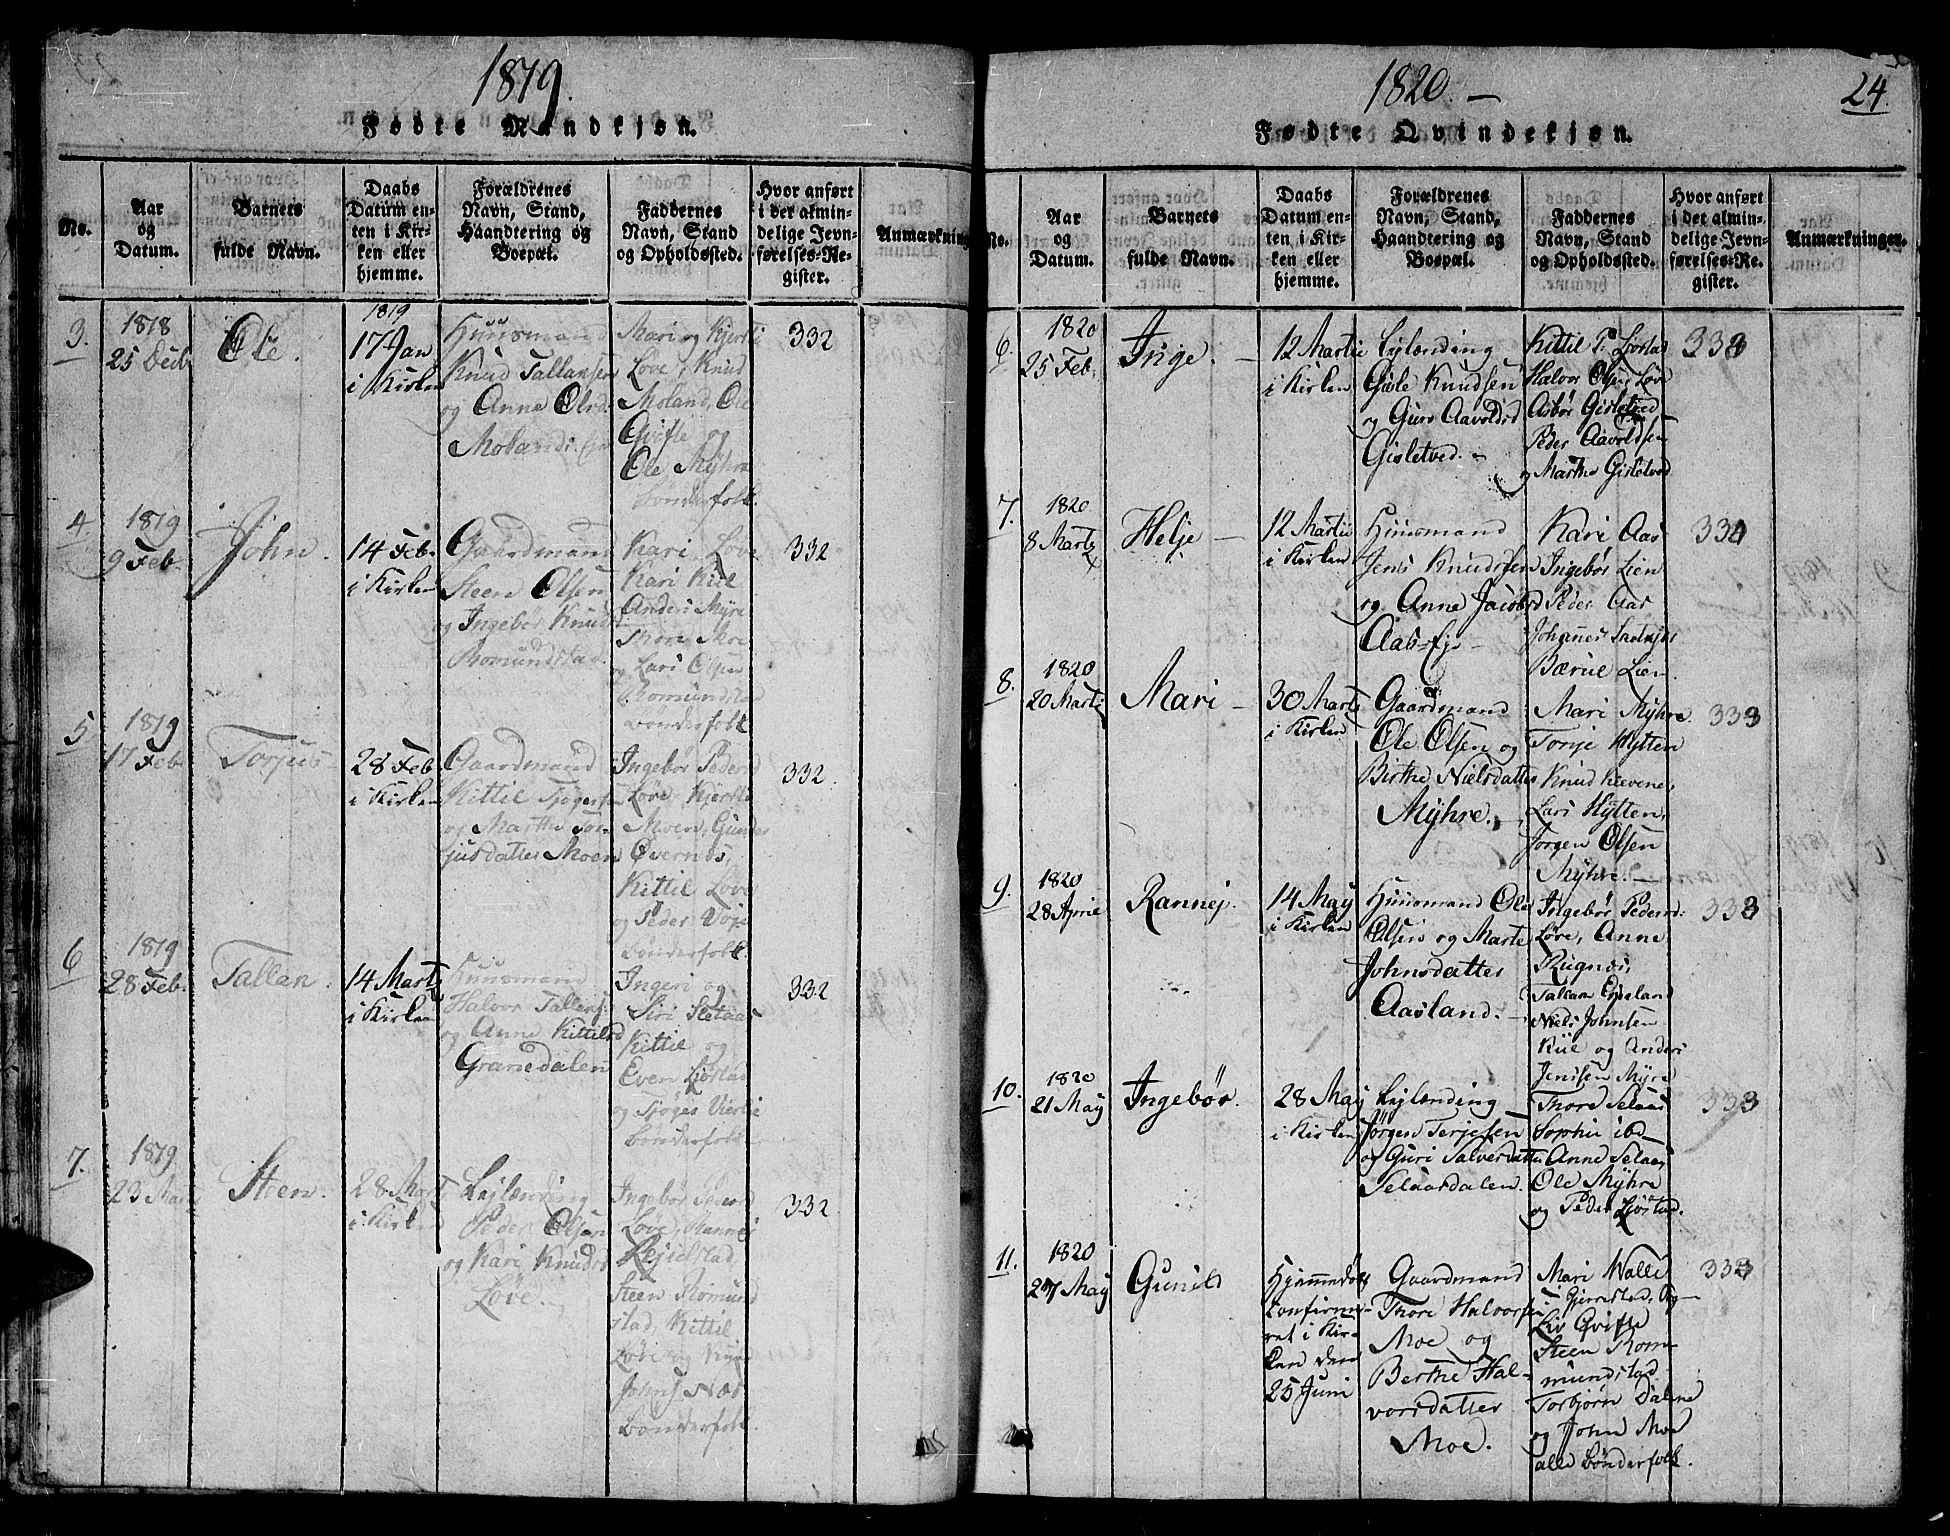 1819.
Fødte Mandkjøn.
No.
Aar
og
Datum.
Barnets
fulde Navn.
Daabs
Datum en-
ten i Kir-
ken eller
hjemme.
Forældrenes
Navn, Stand,
Haandtering og
Boepæl.
Faddernes
Navn, Stand
og Opholdssted.
Hvor anført
i det almin-
delige Jevn-
førelses-Re-
gister.
Anmærkning
3.
1818
25 Decb
Ole.
1819
17 Jan
i Kirken
Huusmand
Knud Tallaksen
og Anne Olsd.
Molands
Mari og Kjersti
Løve, Knud
Moland, Ole
Qvifte og
Ole Myhre
Bønderfolk.
332
4.
1819
9 Feb.
John.
14 Feb.
i Kirken
Gaardmand
Steen Olsen
og Ingebør Knuds
Romundstad.
Kari Løve
Kari Kiil
Anders Myre
Thore Moe
og Lars Olsen
Romundstad
Bønderfolk
332
5
1819
17 Feb
Torjus
28 Feb
i Kirken
Gaardmand
Kittil Tjøgersen
og Marthe Tor-
jusdatter Moen
Ingebør Pedersd
Løve, Kjersti
Moen, Gunder
Øvernæs,
Kittil Løve
og Peder
Bønderfolk.
332.
6
1819
28 Feb.
Tallak.
14 Marti
i Kirken
Huusmand
Halvor Tallaks.
og Anne Kittilsd
Granedalen
Ingeri og
Siri Sletaas
Kittil og
Even Ljøstad
og Tjøger Vierli
Bønderfolk
332
7.
1819
23 Mart
Steen.
28 Mart
i Kirken
Lejlænding
Peder Olsen
og Kari Knudsd
Løve.
Ingebør Pedersd
Løve, Rannei
Lejelstad,
Steen Romund
stad, Kittil
Løve og
Johns Næs
Bønderfolk.
332
1820.
24.
Fødte Qvindekjøn.
No.
Aar
og
Datum.
Barnets
fulde Navn.
Daabs
Datum en-
ten i Kir-
ken eller
hjemme.
Forældrenes
Navn, Stand,
Haandtering og
Boepæl.
Faddernes
Navn, Stand
og Opholdssted.
Hvor anført
i det almin-
delige Jevn-
førelses-Re-
gister.
Anmærkninger.
6.
1820
25 Feb.
Inge.
12 Martii
i Kirken
Lejlænding
Gisle Knudsen
og Guro Aavoldsd
Gisletved.
Kittil P. Ljøstad
Halvor Olsen Løve
Asbør Gisletved
Peder Aavoldsen
og Marthe Gisletved
333
7.
1820
8 Marti
Helje
12 Martii
i Kirken
Huusmand
Jens Knudsen
og Anne Jacobsd
Aas-eje
Kari Aas
Ingebør Lien
Peder Aas
Johannes
Bærue Lien.
334
8.
1820
20 Marti
Mari
30 Marti
i Kirken
Gaardmand
Ole Olsen og
Birthe Nielsdatter
Myhre.
Mari Myhre
Tonje Hytten
Knud Kleevene,
Lars Hytten,
Jørgen Olsen
Myhre.
333
9.
1820
28 Aprie
Rannej.
14 May
i Kirken
Huusmand Ole
Olsen og Marte
Johnsdatter
Aasland.
Ingebør Pedersd:
Løve, Anne
Rugnæs,
Tallak Espeland
Niels Johnsen
Kiil og Anders
Jenssen Myre
333
10.
1820
21 May
Ingebør.
28 May
i Kirken
Lejlænding
Jørgen Terjesen
og Guri Salvesdatter
Selaasdalen.
Thore Selaas
Sophie ibd
Anne Selaas
Ole Myhre
og Peder Ljøstad.
333
11.
1820
27 May
Gunild
Hjemmedøbt
Confirme-
ret i Kir-
ken den
25 Juni
Gaardmand
Thore Halvorsen
Moe og
Berthe Hal-
vorsdatter
Moe.
Mari Walle
Gjerrestad,
Liv Qvifte
Steen Rom-
mundstad
Torbjørn Dalene
og John Moe
alle Bønderfolk.
333